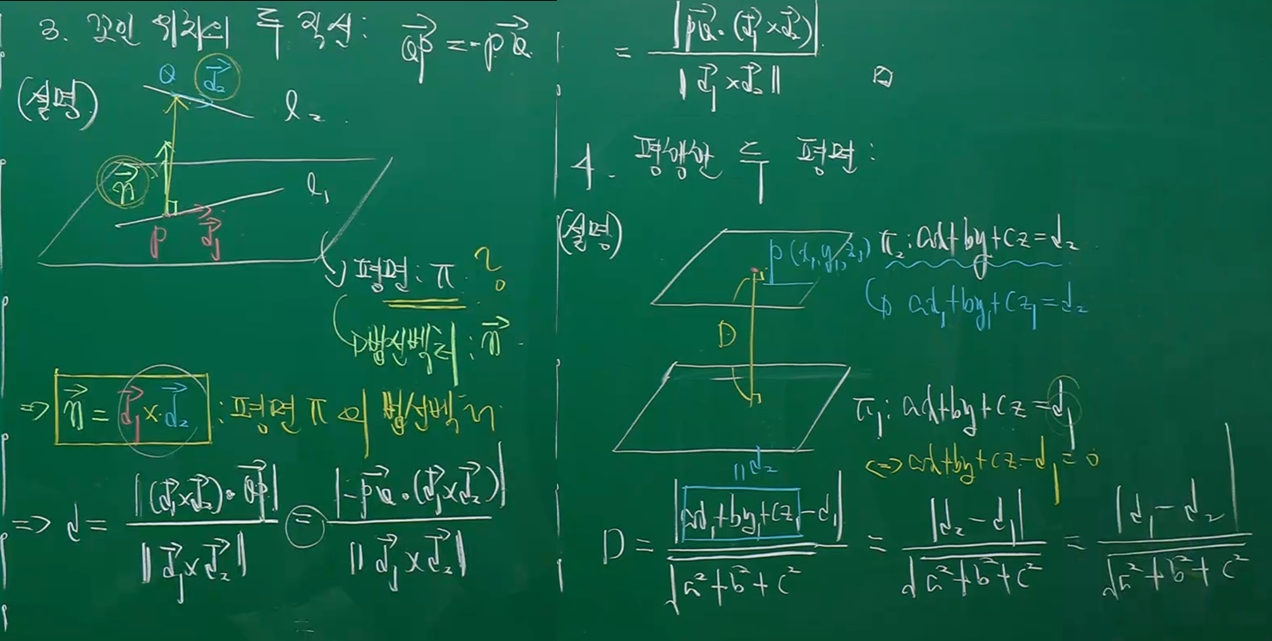 3. 꼬인 위치의 두 직선:
$\overrightarrow{QP} = -\overrightarrow{PQ}$
(설명)
Q $\vec{d_2}$
$l_2$
$\vec{n}$
$l_1$
P $\vec{d_1}$
평면: π ?
법선벡터: $\vec{n}$
⇒ $\vec{n} = \vec{d_1} \times \vec{d_2}$ : 평면 π의 법선벡터
⇒ $d = \frac{|(\vec{d_1} \times \vec{d_2}) \cdot \overrightarrow{QP}|}{\|\vec{d_1} \times \vec{d_2}\|} = \frac{|-\overrightarrow{PQ} \cdot (\vec{d_1} \times \vec{d_2})|}{\|\vec{d_1} \times \vec{d_2}\|}$
$= \frac{|\overrightarrow{PQ} \cdot (\vec{d_1} \times \vec{d_2})|}{\|\vec{d_1} \times \vec{d_2}\|}$ □
4. 평행한 두 평면:
(설명)
$P(x_1, y_1, z_1)$
$π_2: ax+by+cz=d_2$
$ax_1+by_1+cz_1=d_2$
D
$π_1: ax+by+cz=d_1$
⇔ $ax+by+cz-d_1=0$
|| $d_2$
$D = \frac{|ax_1+by_1+cz_1-d_1|}{\sqrt{a^2+b^2+c^2}} = \frac{|d_2-d_1|}{\sqrt{a^2+b^2+c^2}} = \frac{|d_1-d_2|}{\sqrt{a^2+b^2+c^2}}$